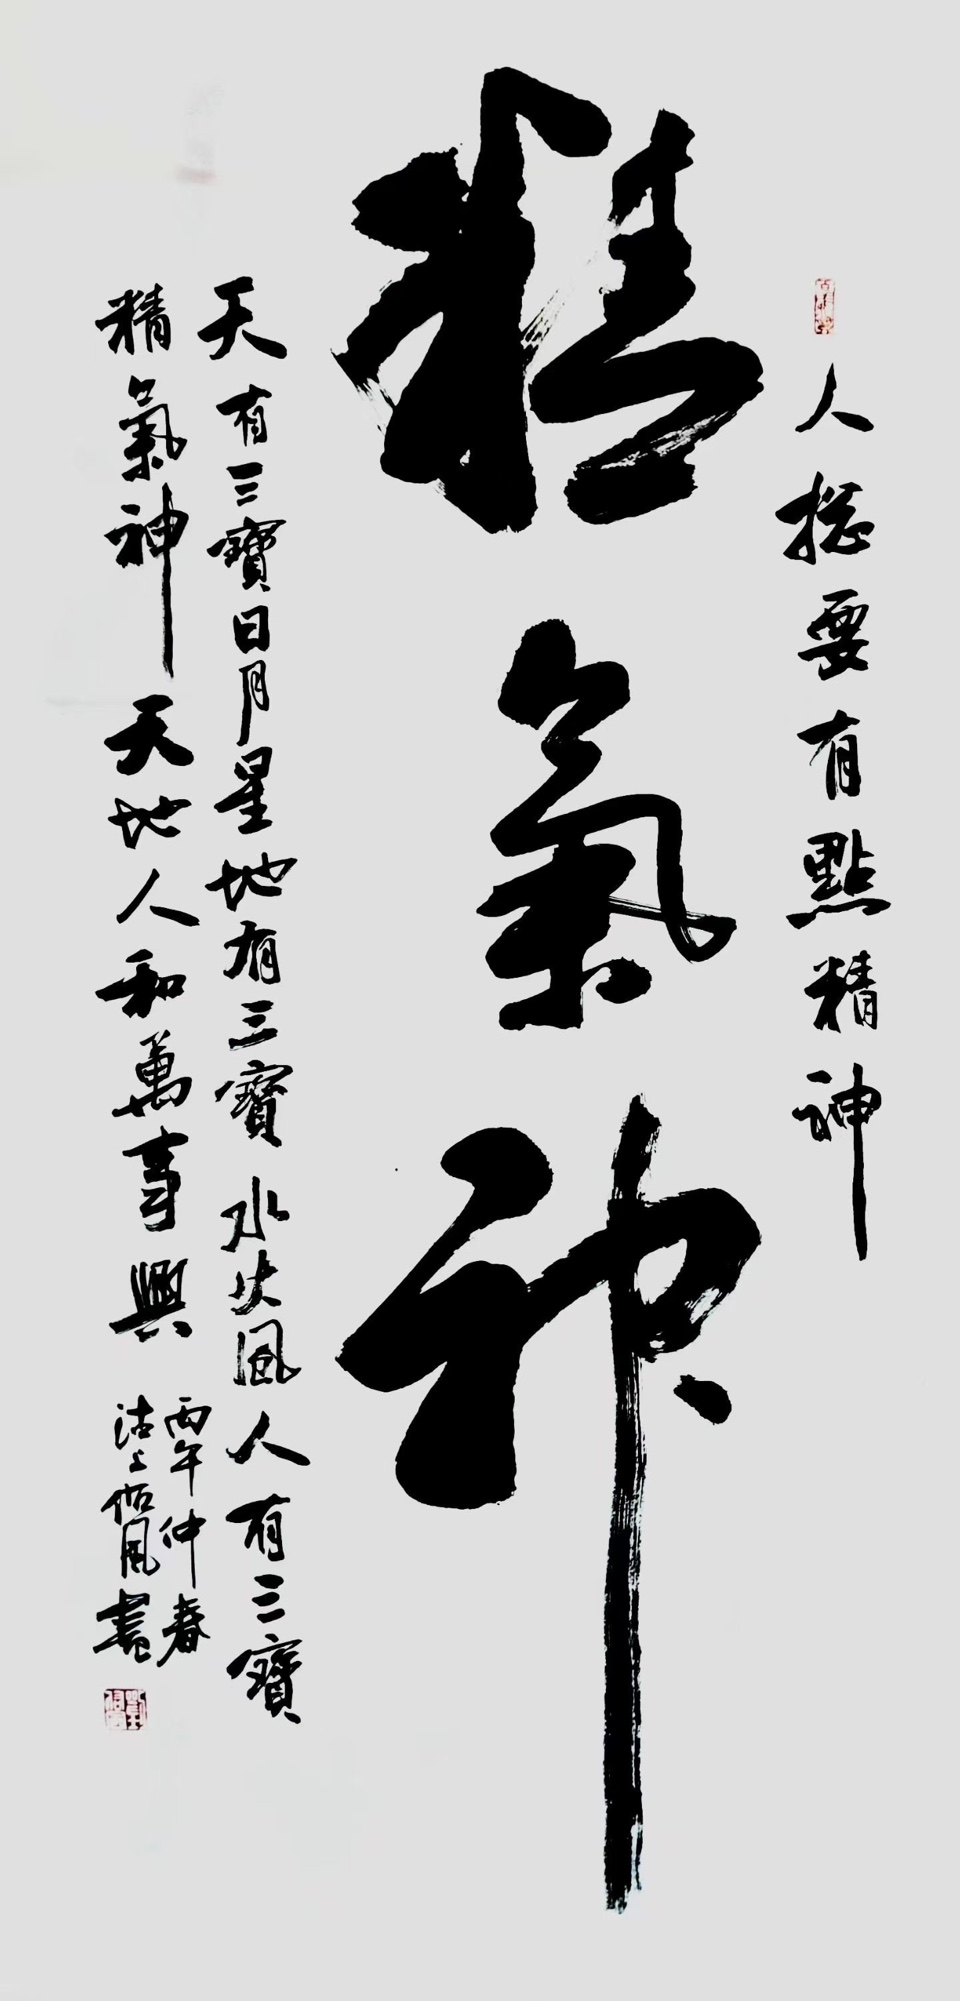 人總要有點精神
精氣神
天有三寶日月星地有三寶水火風人有三寶
精氣神天地人和萬事興
丙午仲春
沽上佑風書